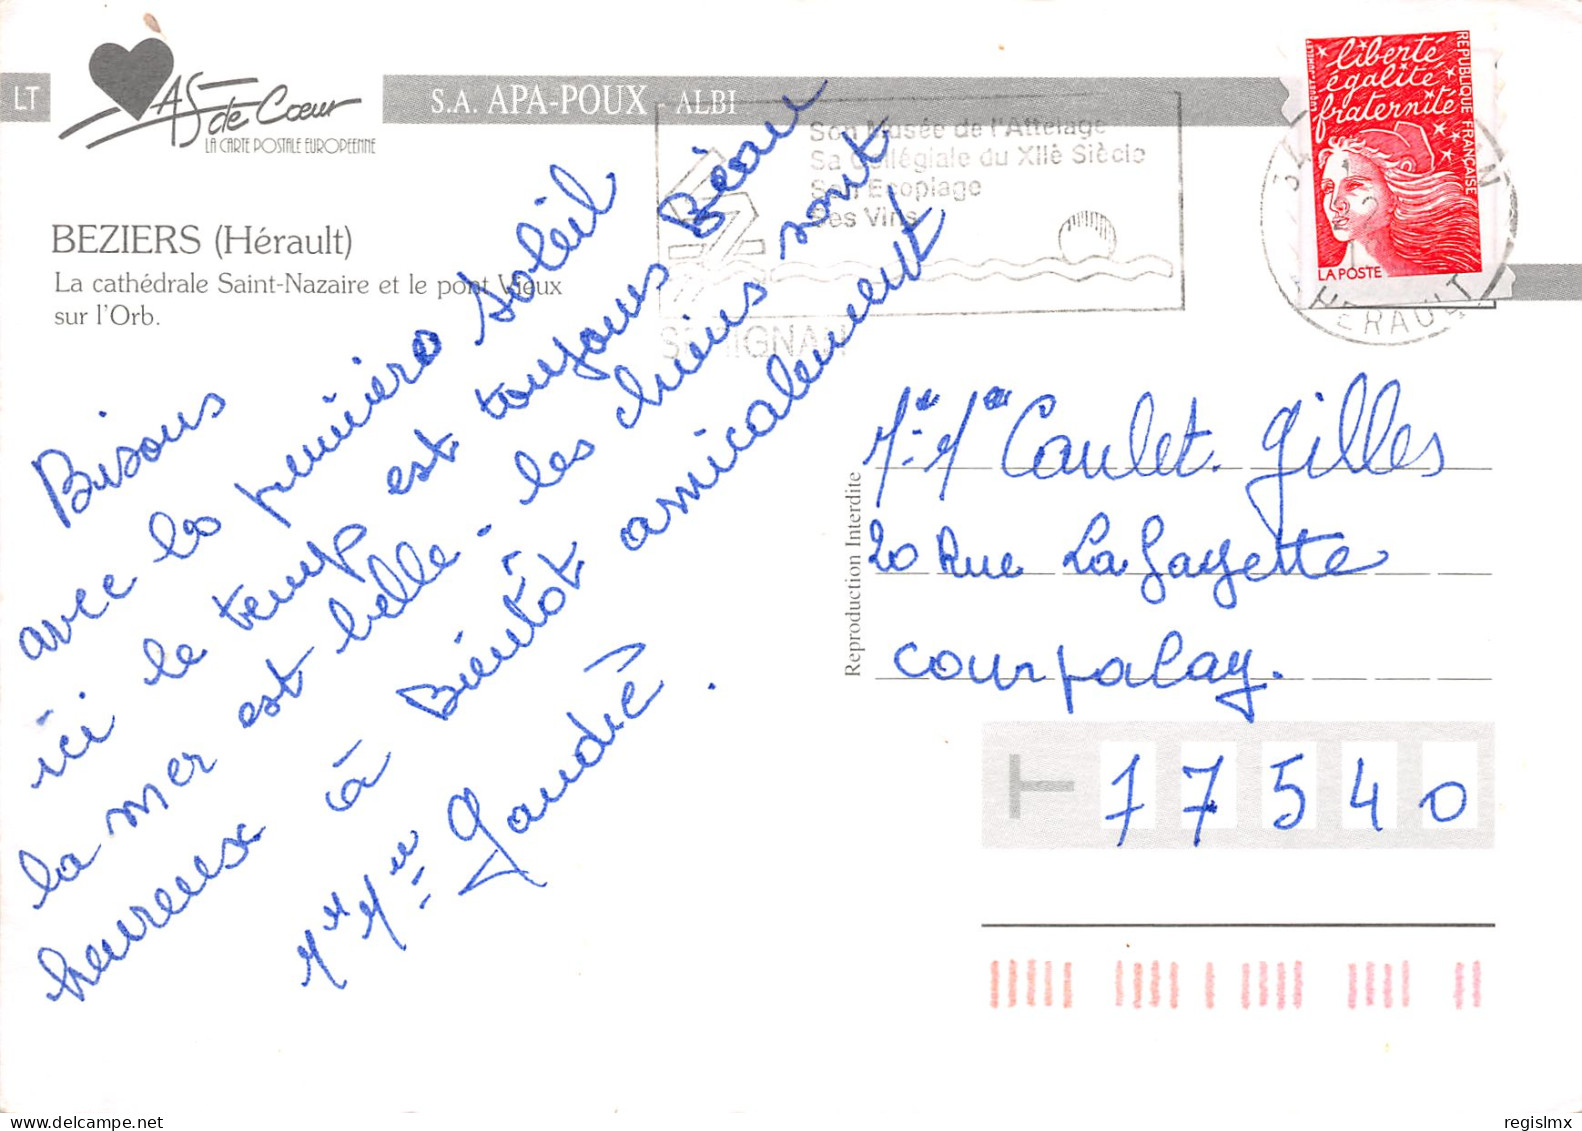 LT
AS de Cœur
LA CARTE POSTALE EUROPEENNE
S.A. APA-POUX - ALBI
BEZIERS (Hérault)
La cathédrale Saint-Nazaire et le pont Vieux
sur l'Orb.
Son Musée de l'Attelage
Sa Collégiale du XIIè Siècle
Son Ecoplage
Ses Vins
SERIGNAN
34
HERAULT
liberté
égalité
fraternité
REPUBLIQUE FRANÇAISE
LA POSTE
Bisous
avec les premiers soleil
ici le temps est toujours Beau
la mer est belle - les chiens sont
heureux à Bientôt amicalement
Mr Mme Gaudié.
Reproduction Interdite
Mr Mme Caulet. Gilles
20 Rue La Fayette
courpalay.
T 77540
regislmx